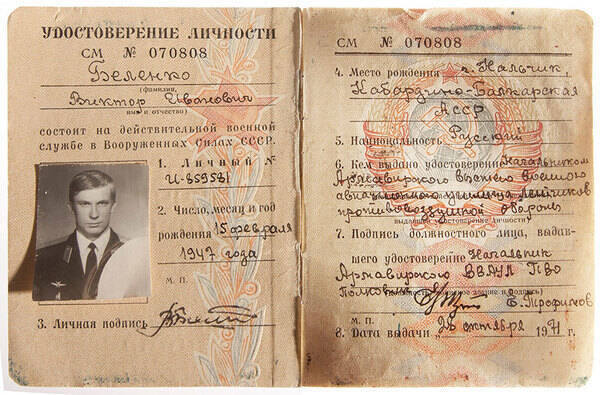 УДОСТОВЕРЕНИЕ ЛИЧНОСТИ
СМ № 070808
Беленко
(фамилия,
Виктор Иванович
имя и отчество)
состоит на действительной военной
службе в Вооруженных Силах СССР.
1. Личный №
И-859581
2. Число, месяц и год
рождения 15 февраля
1947 года
М. П.
3. Личная подпись
СМ № 070808
4. Место рождения г. Нальчик,
Кабардино-Балкарская
АССР
5. Национальность Русский
6. Кем выдано удостоверение Начальником
Армавирского высшего военного
авиационного училища лётчиков
противовоздушной обороны
выдавшего удостоверение личности)
7. Подпись должностного лица, выдав-
шего удостоверение Начальник
Армавирского ВВАУЛ ПВО
Полковник Е. Трофимов
звание и подпись)
М. П.
8. Дата выдачи „28 октября 1971 г.